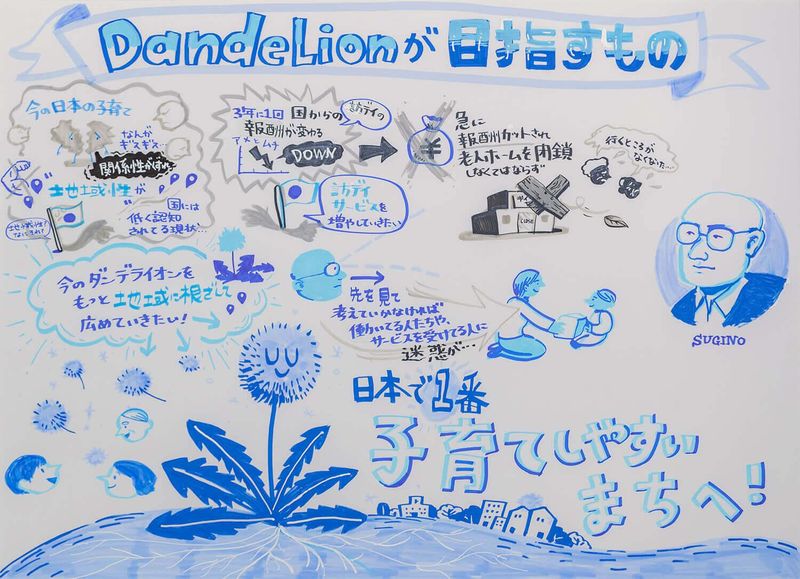 DandeLionが目指すもの
今の日本の子育て
なんか
ギスギス…
関係性がすれ
"土地土或・性が
国には
"低く認知
されてる現状…
3年に1回 国からの
訪デイの
報酬が変わる
アメとムチ
DOWN
訪デイ
サービスを
増やしていきたい
¥
急に
報酬カットされ
老人ホームを閉鎖
しなくてはならず
CLOSE
行くところが
なくなった…
今のダンデライオンを
もっと土地土或に根ざして
広めていきたい!
先を見て
考えていかなければ
働いてる人たちや、
サービスを受けてる人に
迷惑が…
SUGINO
日本で1番
子育てしやすい
まちへ!